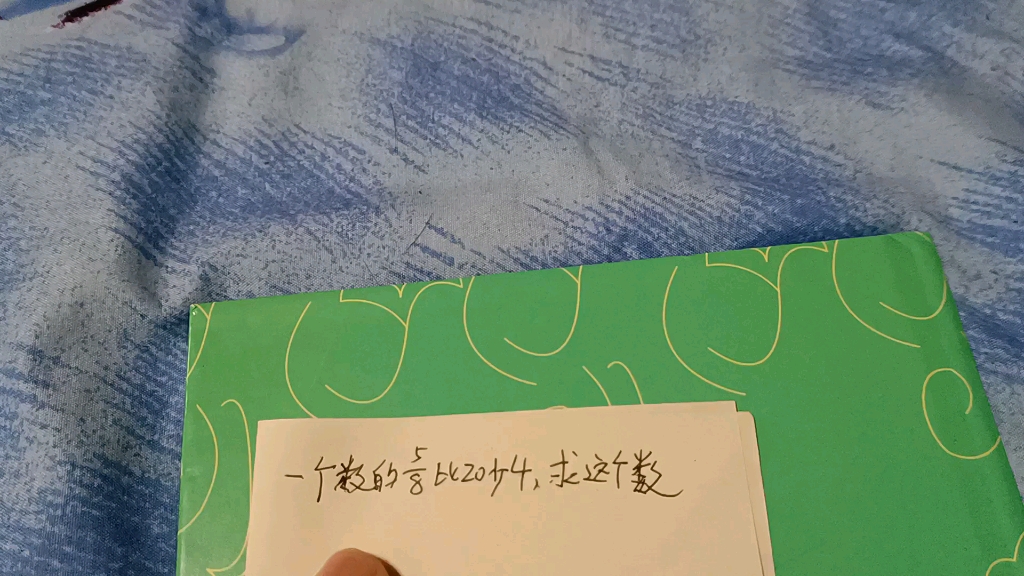 一个数的5/8比20少4,求这个数